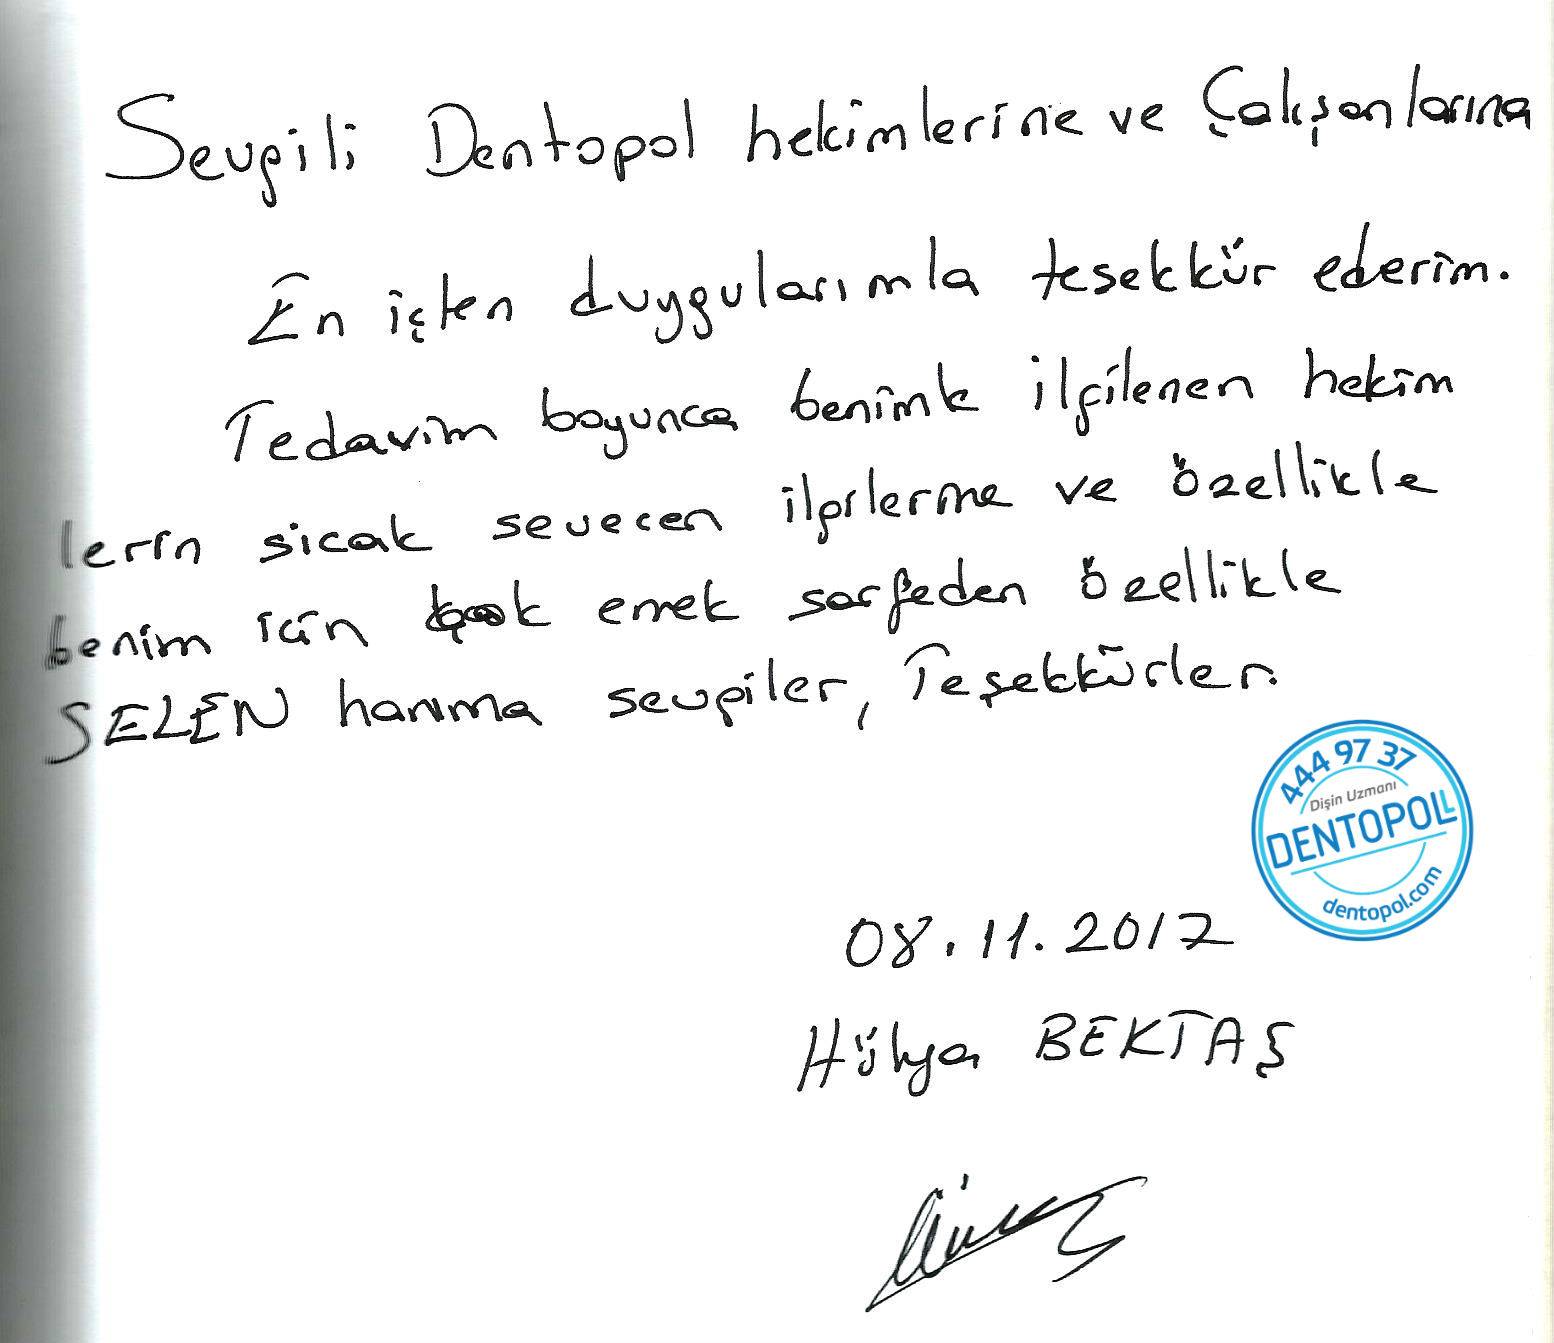 Sevgili Dentopol hekimlerine ve Çalışanlarına
En içten duygularımla teşekkür ederim.
Tedavim boyunca benimle ilgilenen hekim
lerin sicak sevecen ilgilerine ve özellikle
benim için çok emek sarfeden özellikle
SELEN hanıma sevgiler, Teşekkürler.
444 97 37
Dişin Uzmanı
DENTOPOLL
dentopol.com
08.11.2017
Hülya BEKTAŞ